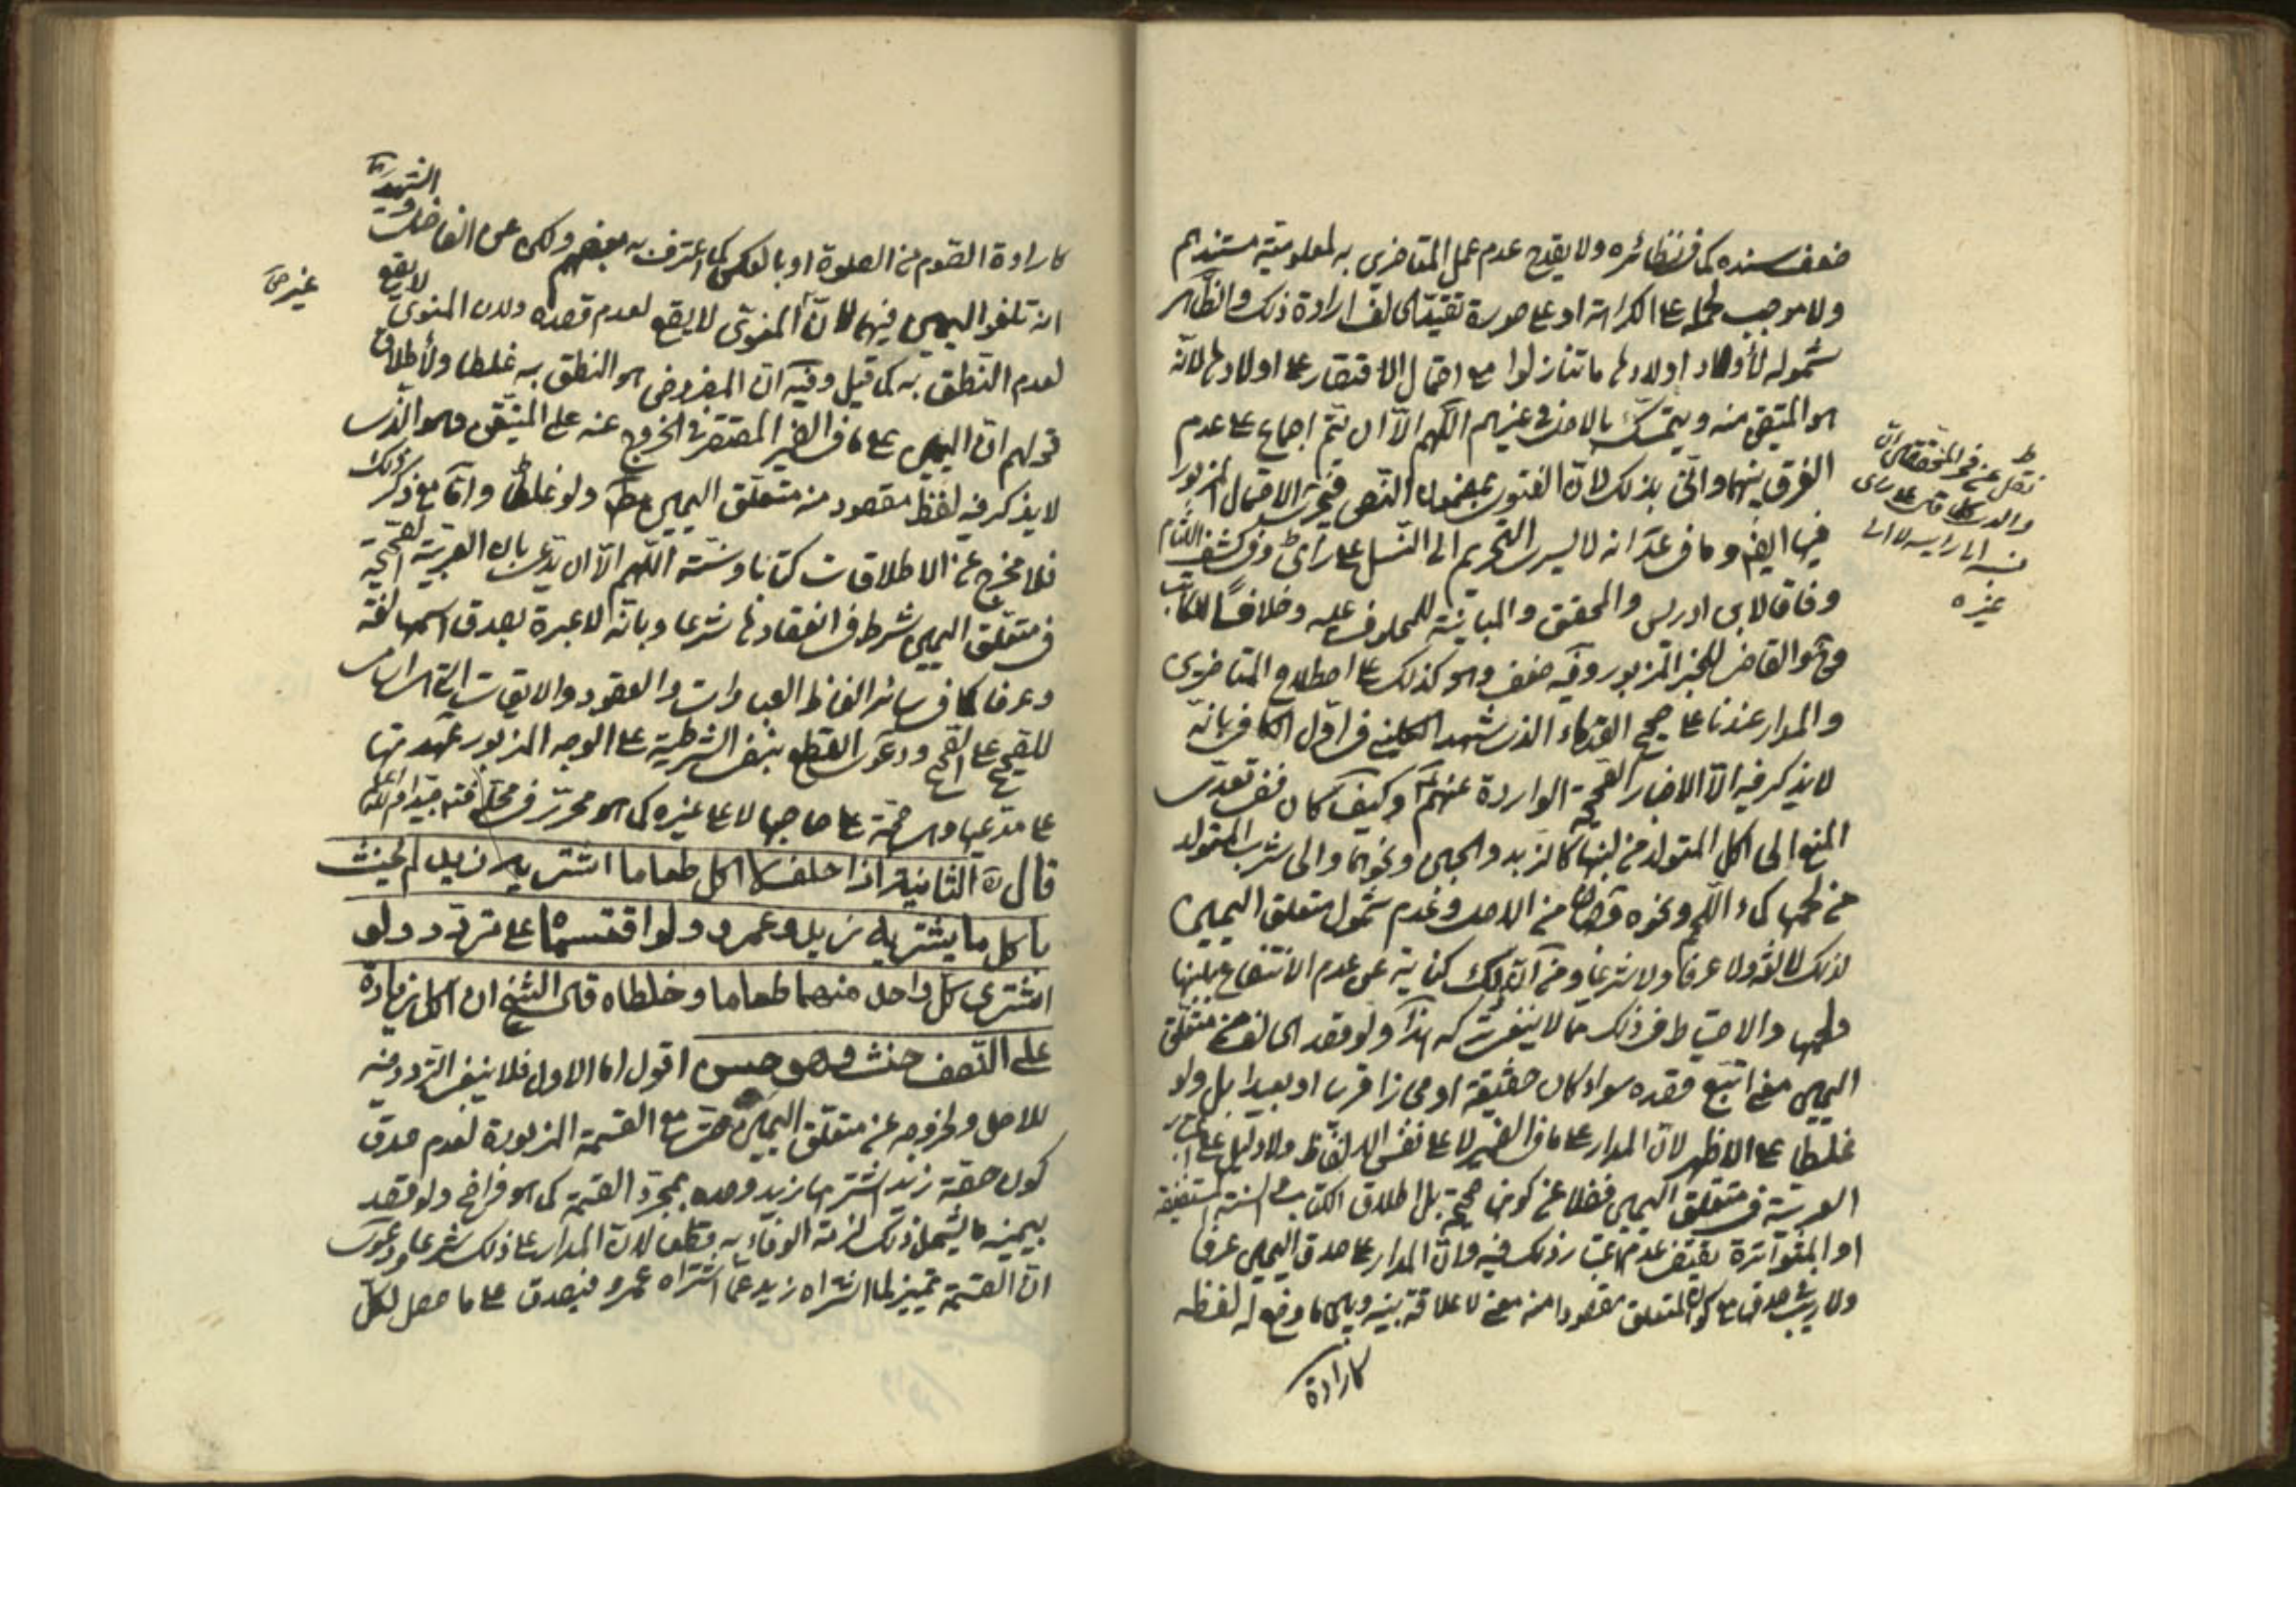 ضعف سنده كما في نظائره ولا يقدح عدم عمل المتاخرين به لمعلومية مستندهم
ولا موجب لحمله على الكراهة او على صورة تقيد الحالف ارادة ذلك والظاهر
شموله لأولاد اولادها ما تنازلوا مع احتمال الاقتصار على اولادها لانه
هو المتيقن منه ويتمسك بالاصل في غيرهم اللهم الا ان يتم اجماع على عدم
الفرق بينهما وانى بذلك لان الفتوى بمضمون النص فيجري الاحتمال المزبور
فيها ايضا وما في عد انه لا يسري التحريم الى النسل على راى وفي كشف اللثام
وفاقا لابن ادريس والمحقق والمباينة للمحلوف عليه وخلافا للكاتب
والقاضي للخبر المزبور وفيه ضعف وهو كذلك على اصطلاح المتاخرين
والمدار عندنا على صحيح القدماء الذي شهد الكليني في اول الكافي بانه
لا يذكر فيه الا الاخبار الصحيحة الواردة عنهم وكيف كان ففي تعدى
المنع الى اكل المتولد من لبنها كالزبد والجبن ونحوهما والى شرب المتولد
من لحمها كماء اللحم ونحوه من الاصل وعدم شمول متعلق اليمين
لذلك لا لغة ولا عرفا ولا شرعا ومن ان ذلك كناية عن عدم الانتفاع بلبنها
ولحمها والاحتياط في ذلك مما لا ينبغي تركه هذا ولو قصد الحالف من متعلق
اليمين معنى اتبع قصده سواء كان حقيقة او مجازا قرب او بعد بل ولو
غلطا على الاظهر لان المدار على ما في الضمير لا على نفس الالفاظ ولا دليل على اعتبار
العربية في متعلق اليمين فضلا عن كونها صحيحة بل اطلاق الكتاب والسنة المستفيضة
او المتواترة يقتضي عدم اعتبار ذلك فيه وان المدار على صدق اليمين عرفا
ولا ريب في صدقها مع كون المتعلق مقصودا منه معنى لا علاقة بينه وبين ما وضع له لفظه
كارادة
نقل عن فخر المحققين ان
والده كلما قال على راى
نسبه الى رايه لا الى
غيره
كارادة الصوم من الصلوة او بالعكس كما اعترف به بعضهم وحكى عن الفاضل و
الشهيد
ان تلغو اليمين فيهما لان المنوى لا يقع لعدم قصده ولان المنوى لا يقع
لعدم النطق به كما قيل وفيه ان المفروض هو النطق به غلطا ولاطلاق
قولهم ان اليمين على ما في الضمير المقتصر في الخروج عنه على المتيقن وهو الذي
لا يذكر فيه لفظ مقصود منه متعلق اليمين ولو غلطا واما مع ذكر ذلك
فلا مخرج عن الاطلاقات كتابا وسنة اللهم الا ان يدعى بان العربية الصحيحة
في متعلق اليمين شرط في انعقادها شرعا وبانه لا عبرة بصدق اسمها لغة
وعرفا كما في سائر الفاظ العبادات والعقود والايقاعات
للصحيح على الصحيح ودعوى القطع بنفى الشرطية على الوجه المزبور عهدتها
على مدعيها وهى حجة على صاحبها لا على غيره كما هو محرر في محله فتدبر جيدا
قال ره الثانية اذا حلف لا اكل طعاما اشتريه زيد لم يحنث
باكل ما يشتريه زيد وعمرو ولو اقتسماه على تردد ولو
اشترى كل واحد منهما طعاما وخلطاه قال الشيخ ان اكل زيادة
على النصف حنث وهو حسن اقول اما الاول فلا ينبغي التردد فيه
للاصل ولخروجه عن متعلق اليمين حتى مع القسمة المزبورة لعدم صدق
كون حصة زيد اشتراها زيد وحده بمجرد القسمة كما هو واضح ولو قصد
بيمينه ما يشمل ذلك لزمه الوفاء به قطعا لان المدار على ذلك شرعا ودعوى
ان القسمة تمييز لما اشتراه زيد عما اشتراه عمرو فيصدق على ما حصل لكل